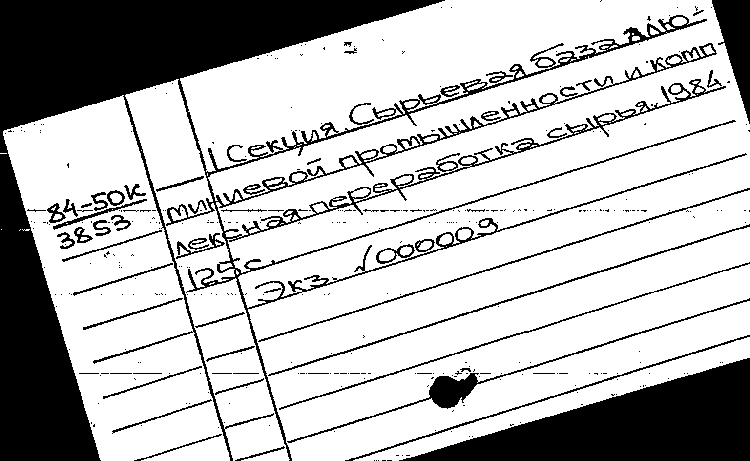 I Секция. Сырьевая база алю-
миниевой промышленности и комп-
лексная переработка сырья. 1984.
125с.
Экз. √000009
84-50К
3853